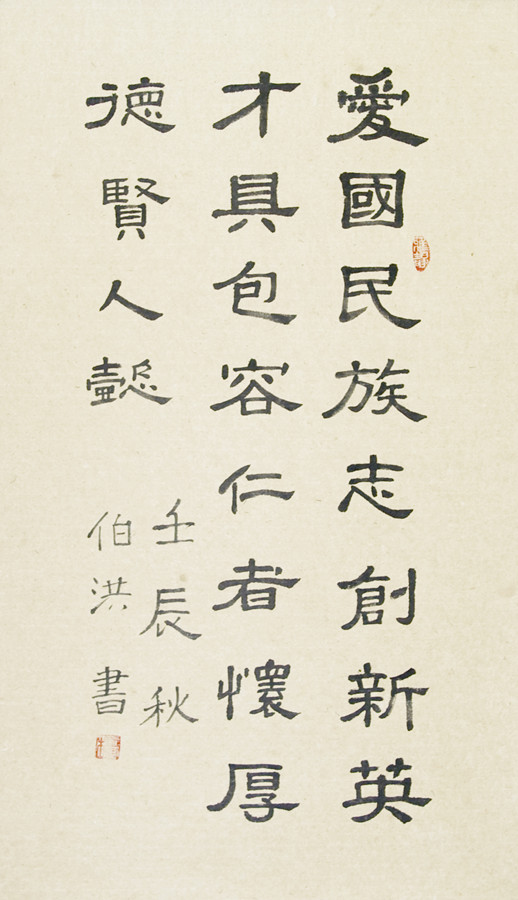 愛國民族志創新英
才具包容仁者懷厚
德賢人懿
壬辰秋
伯洪書